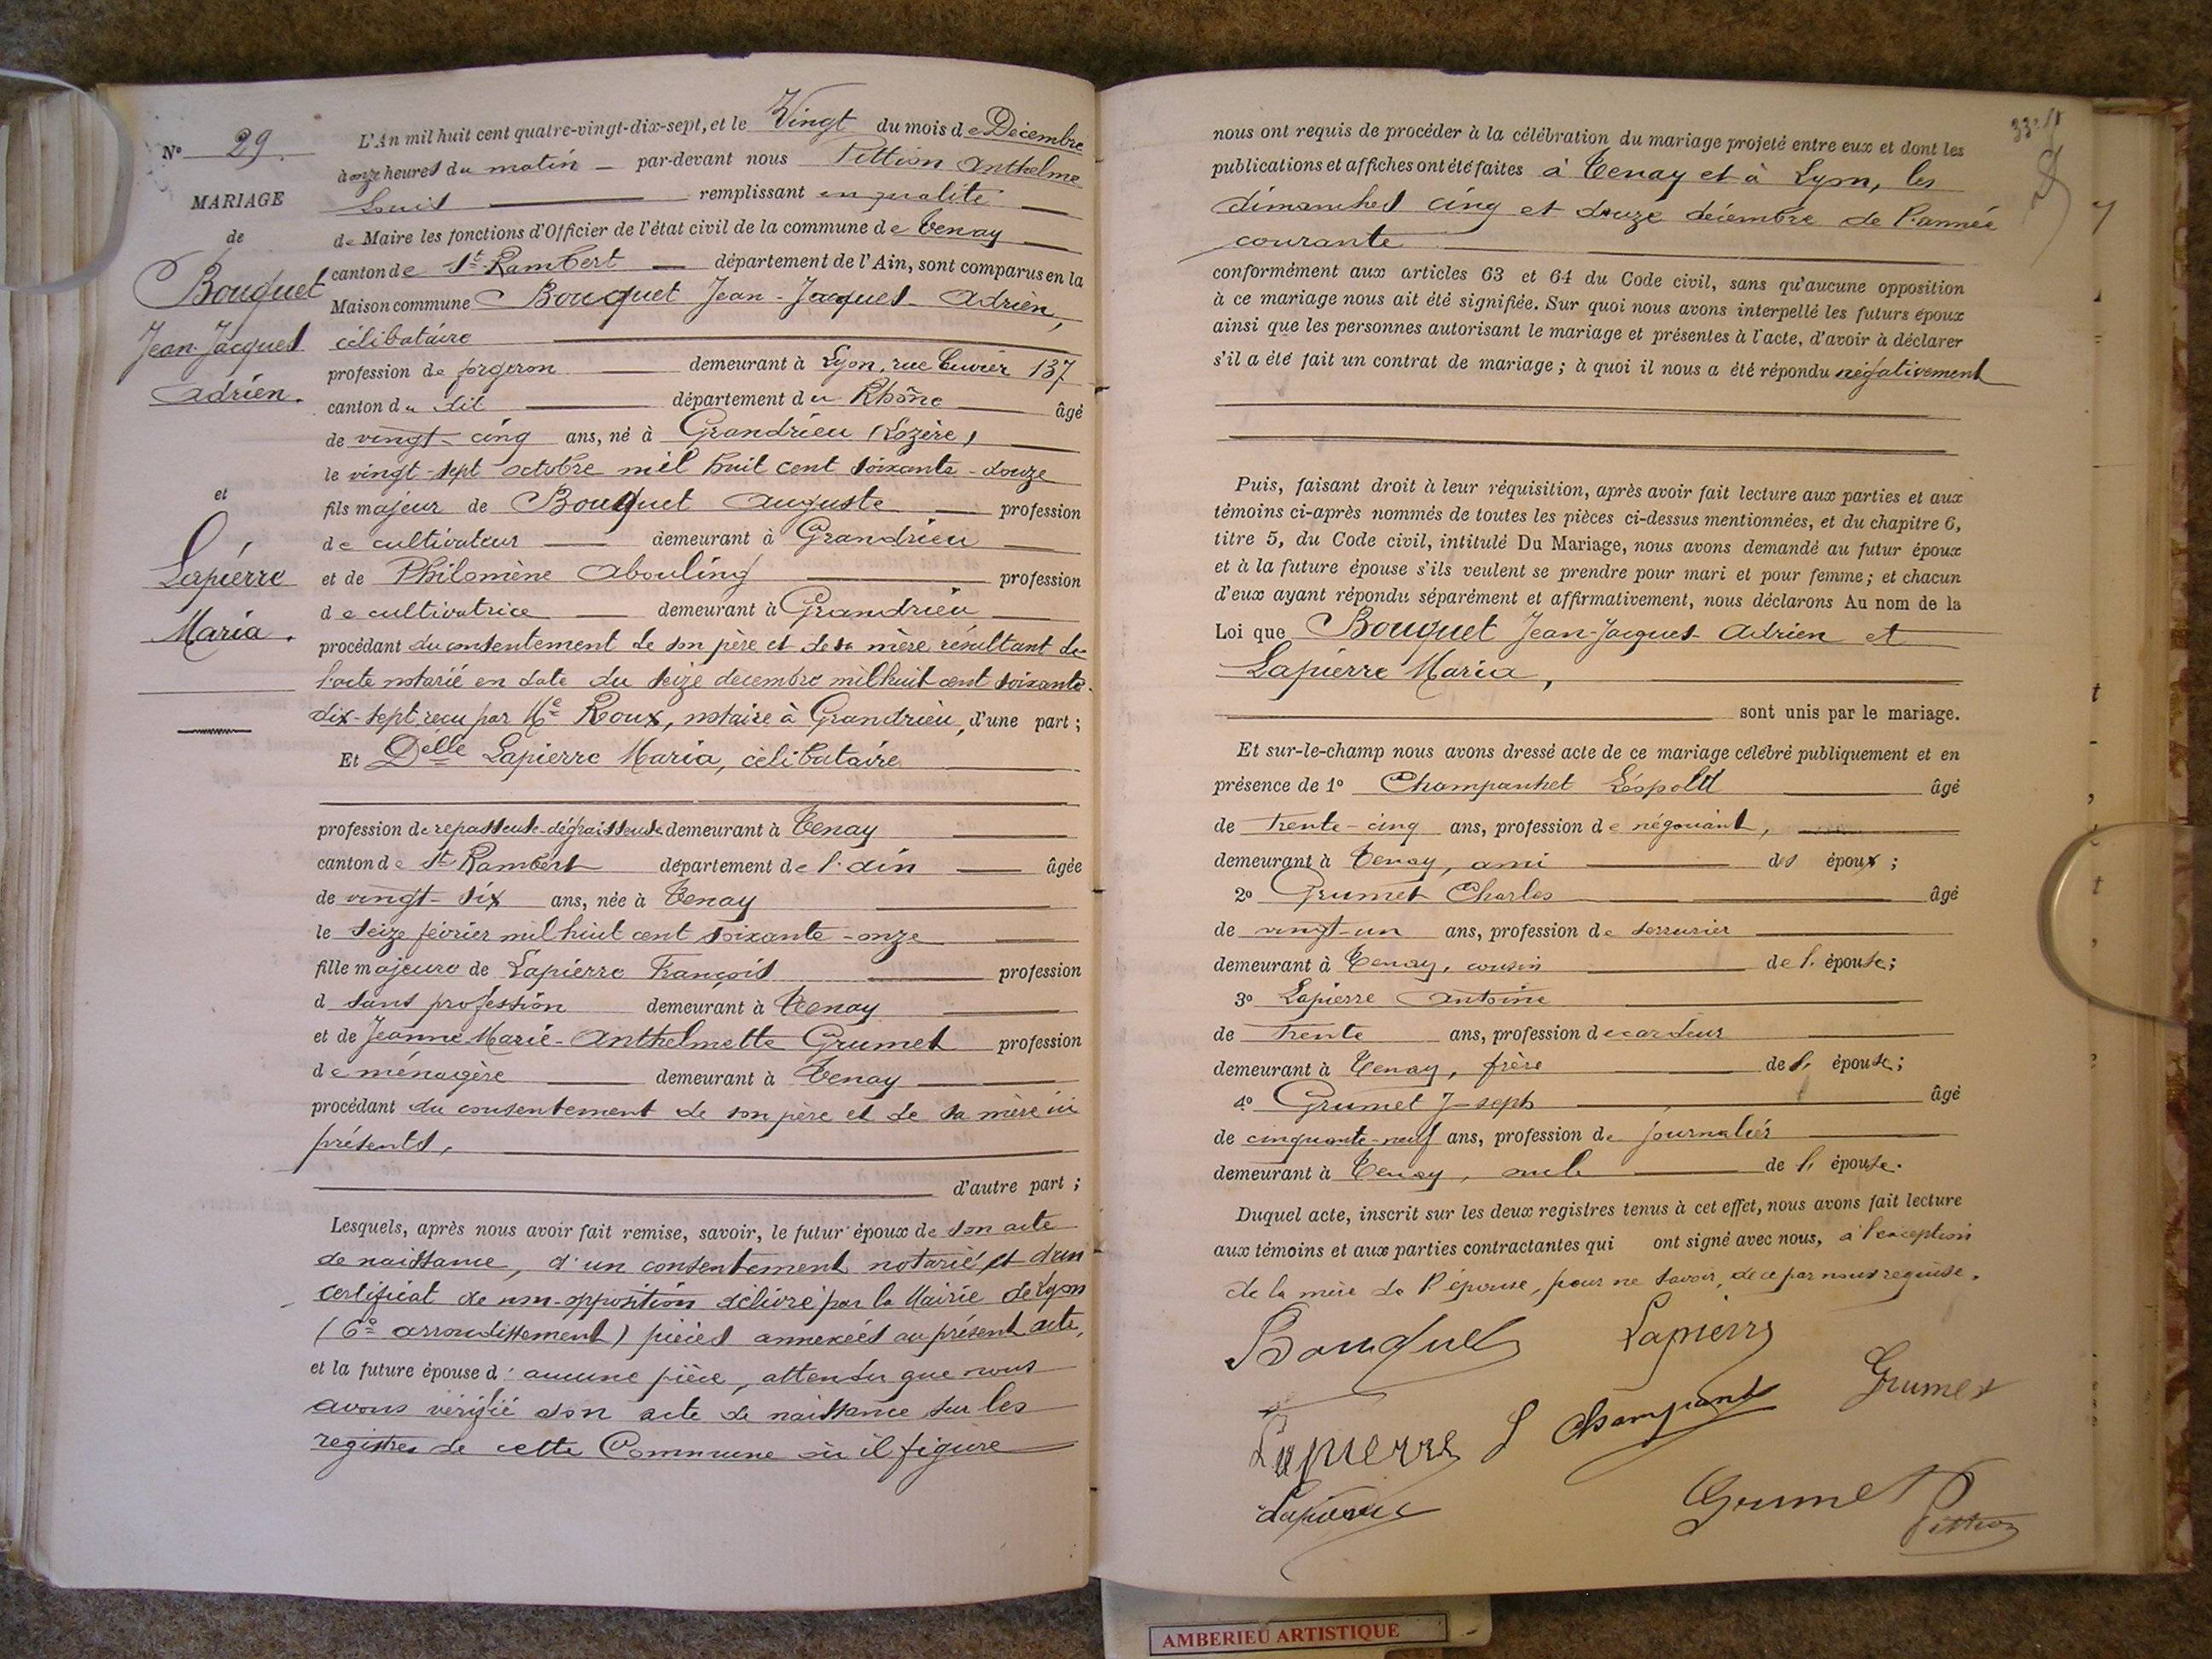 L'An mil huit cent quatre-vingt-dix-sept, et le Vingt du mois de Décembre
à onze heures du matin par-devant nous Pittion Anthelme
Louis remplissant en qualité
de Maire les fonctions d'Officier de l'état civil de la commune de Tenay
canton de St Rambert département de l'Ain, sont comparus en la
Maison commune Bouquet Jean-Jacques-Adrien,
célibataire
profession de forgeron demeurant à Lyon, rue Cuvier 137
canton du dit département du Rhône âgé
de vingt-cinq ans, né à Grandrieu (Lozère)
le vingt-sept octobre mil huit cent soixante-douze
fils majeur de Bouquet Auguste profession
de cultivateur demeurant à Grandrieu
et de Philomène Abouling profession
de cultivatrice demeurant à Grandrieu
procédant du consentement de son père et de sa mère résultant de
l'acte notarié en date du seize décembre mil huit cent soixante
dix-sept reçu par Me Roux, notaire à Grandrieu, d'une part ;
Et Delle Lapierre Maria, célibataire
profession de repasseuse-dégraisseuse demeurant à Tenay
canton de St Rambert département de l'Ain âgée
de vingt-six ans, née à Tenay
le seize février mil huit cent soixante-onze
fille majeure de Lapierre François profession
d sans profession demeurant à Tenay
et de Jeanne-Marie-Anthelmette Grumet profession
de ménagère demeurant à Tenay
procédant du consentement de son père et de sa mère ici
présents,
d'autre part ;
Lesquels, après nous avoir fait remise, savoir, le futur époux de son acte
de naissance, d'un consentement notarié et d'un
certificat de non-opposition délivré par la Mairie de Lyon
(6e arrondissement) pièces annexées au présent acte,
et la future épouse d'aucune pièce, attendu que nous
avons vérifié son acte de naissance sur les
registres de cette Commune où il figure
No 29.
MARIAGE
de
Bouquet
Jean-Jacques
Adrien.
et
Lapierre
Maria.
nous ont requis de procéder à la célébration du mariage projeté entre eux et dont les
publications et affiches ont été faites à Tenay et à Lyon, les
dimanches cinq et douze décembre de l'année
courante
conformément aux articles 63 et 64 du Code civil, sans qu'aucune opposition
à ce mariage nous ait été signifiée. Sur quoi nous avons interpellé les futurs époux
ainsi que les personnes autorisant le mariage et présentes à l'acte, d'avoir à déclarer
s'il a été fait un contrat de mariage ; à quoi il nous a été répondu négativement
Puis, faisant droit à leur réquisition, après avoir fait lecture aux parties et aux
témoins ci-après nommés de toutes les pièces ci-dessus mentionnées, et du chapitre 6,
titre 5, du Code civil, intitulé Du Mariage, nous avons demandé au futur époux
et à la future épouse s'ils veulent se prendre pour mari et pour femme ; et chacun
d'eux ayant répondu séparément et affirmativement, nous déclarons Au nom de la
Loi que Bouquet Jean-Jacques-Adrien et
Lapierre Maria,
sont unis par le mariage.
Et sur-le-champ nous avons dressé acte de ce mariage célébré publiquement et en
présence de 1o Champanhet Léopold âgé
de trente-cinq ans, profession de négociant,
demeurant à Tenay, ami des époux ;
2o Grumet Charles âgé
de vingt-un ans, profession de serrurier
demeurant à Tenay, cousin de l'épouse ;
3o Lapierre Antoine
de trente ans, profession de cardeur
demeurant à Tenay, frère de l'épouse ;
4o Grumet Joseph âgé
de cinquante-neuf ans, profession de journalier
demeurant à Tenay, oncle de l'épouse.
Duquel acte, inscrit sur les deux registres tenus à cet effet, nous avons fait lecture
aux témoins et aux parties contractantes qui ont signé avec nous, à l'exception
de la mère de l'épouse, pour ne savoir, de ce par nous requise.
Bouquet Lapierre
Grumet
Lapierre L Champanhet
Lapierre Grumet
Pittion
AMBERIEU ARTISTIQUE